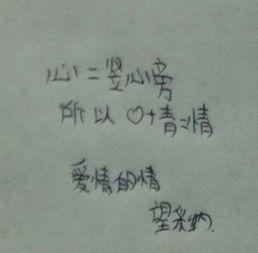 心=竖心旁
所以♡+青=情
爱情的情
望采纳.